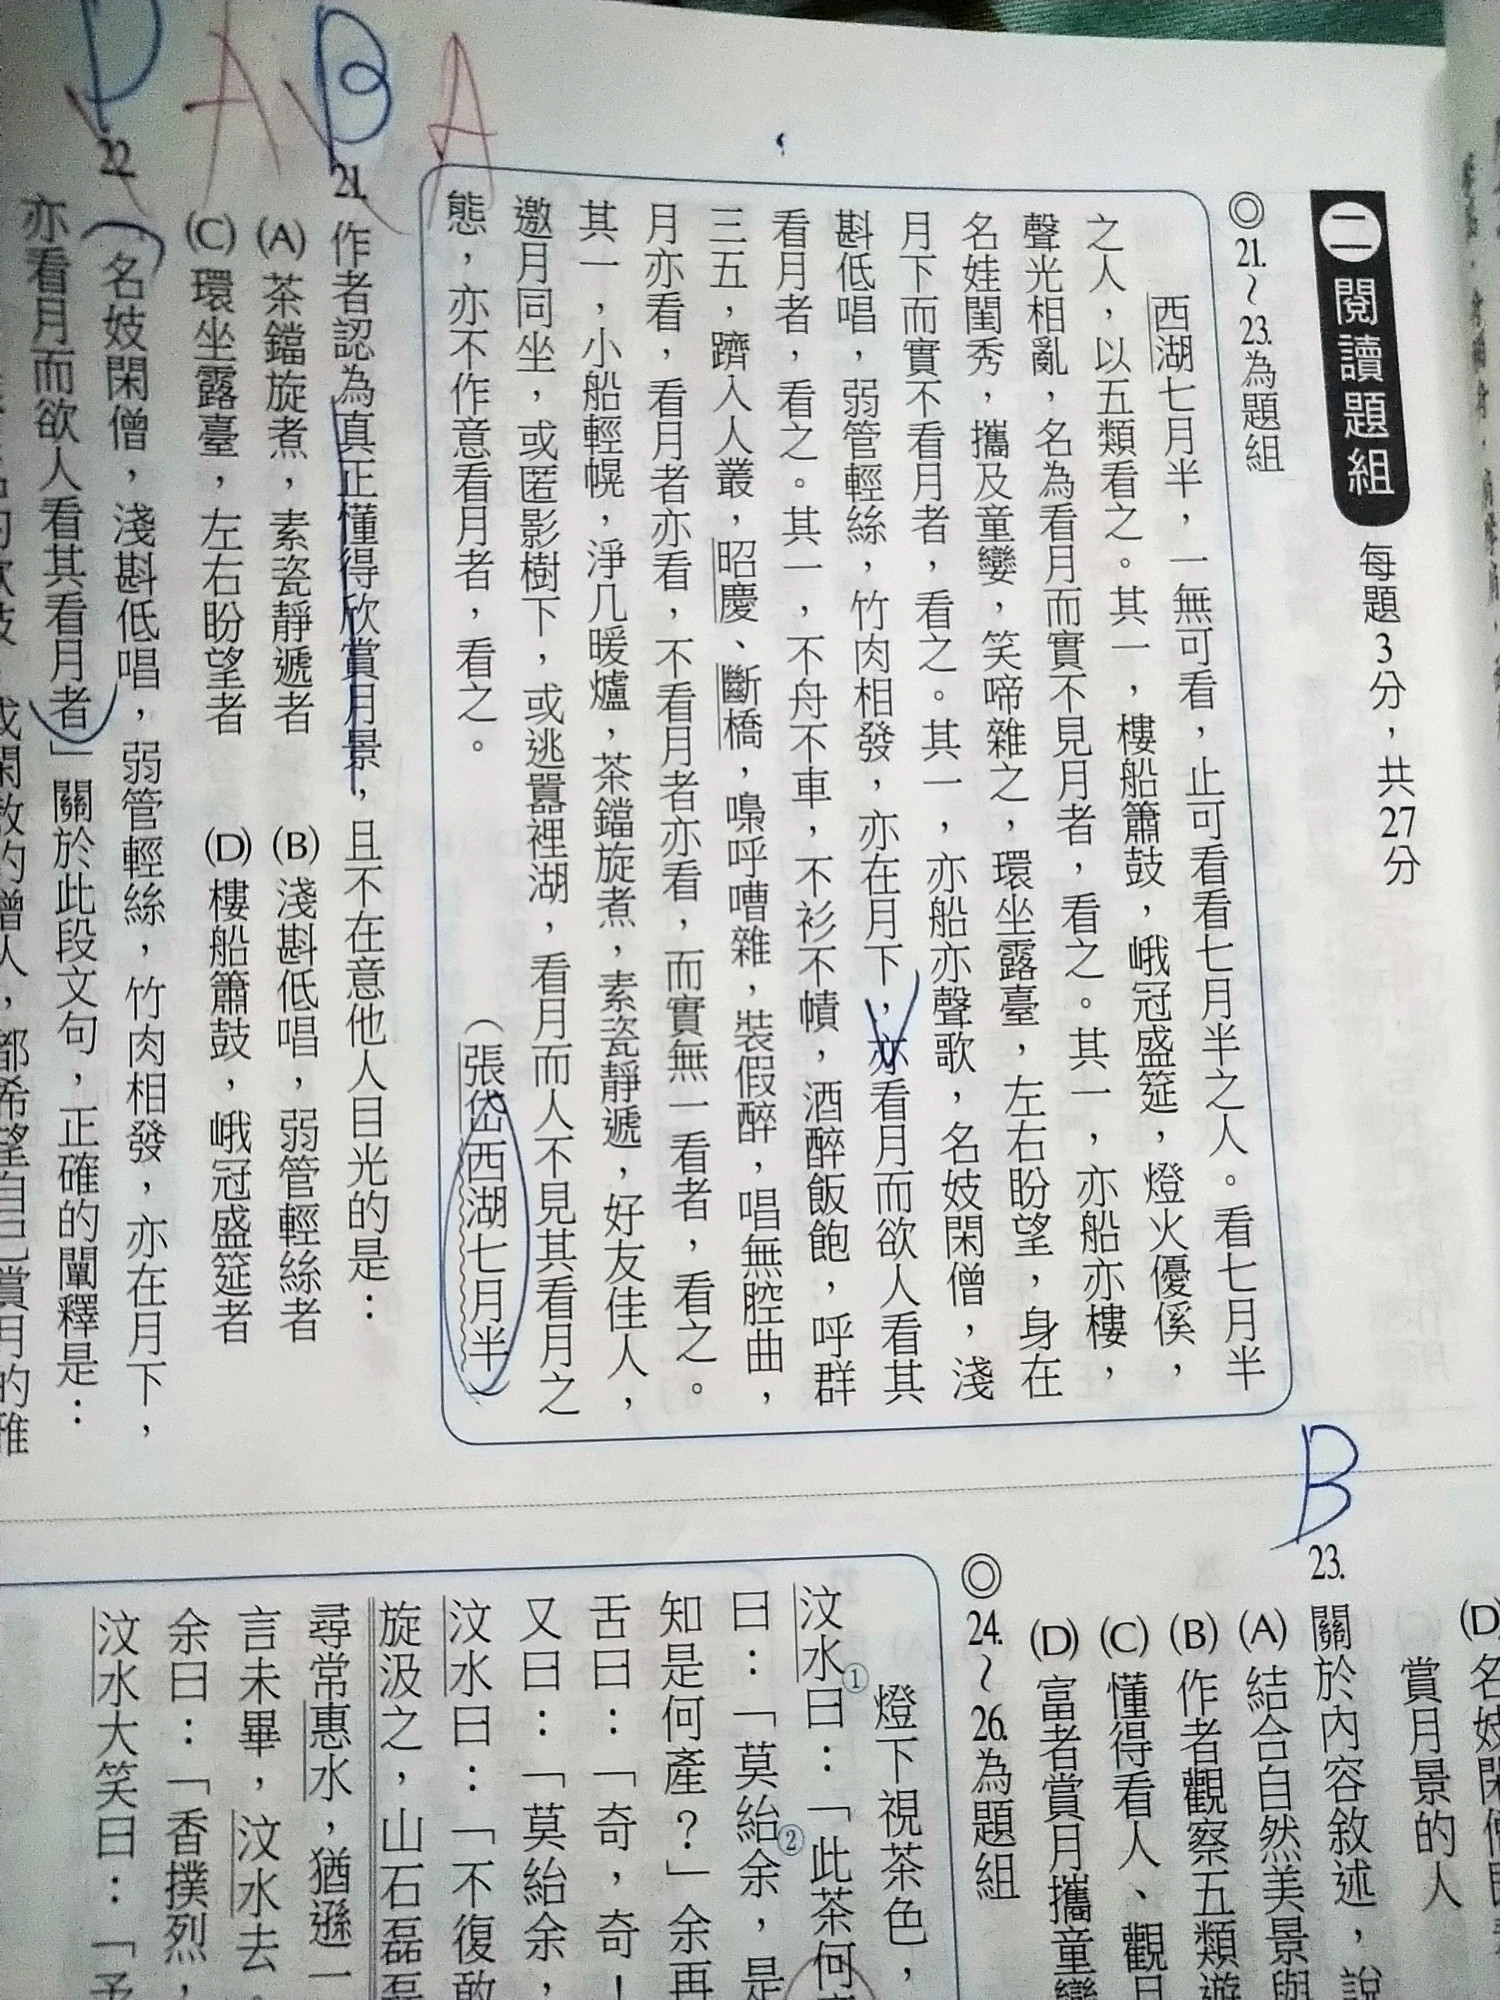 二 閱讀題組 每題3分，共27分
◎21.～23.為題組
西湖七月半，一無可看，止可看看七月半之人。看七月半
之人，以五類看之。其一，樓船簫鼓，峨冠盛筵，燈火優傒，
聲光相亂，名為看月而實不見月者，看之。其一，亦船亦樓，
名娃閨秀，攜及童孌，笑啼雜之，環坐露臺，左右盼望，身在
月下而實不看月者，看之。其一，亦船亦聲歌，名妓閑僧，淺
斟低唱，弱管輕絲，竹肉相發，亦在月下，亦看月而欲人看其
看月者，看之。其一，不舟不車，不衫不幘，酒醉飯飽，呼群
三五，躋入人叢，昭慶、斷橋，嘄呼嘈雜，裝假醉，唱無腔曲，
月亦看，看月者亦看，不看月者亦看，而實無一看者，看之。
其一，小船輕幌，淨几暖爐，茶鐺旋煮，素瓷靜遞，好友佳人，
邀月同坐，或匿影樹下，或逃囂裡湖，看月而人不見其看月之
態，亦不作意看月者，看之。
（張岱西湖七月半）
A
B
21. 作者認為真正懂得欣賞月景，且不在意他人目光的是：
(A) 茶鐺旋煮，素瓷靜遞者 (B) 淺斟低唱，弱管輕絲者
(C) 環坐露臺，左右盼望者 (D) 樓船簫鼓，峨冠盛筵者
A
D
22. 「名妓閑僧，淺斟低唱，弱管輕絲，竹肉相發，亦在月下，
亦看月而欲人看其看月者」關於此段文句，正確的闡釋是：
或閑散的僧人，都希望自己賞月的雅
(D) 名妓閑僧
賞月景的人
B
23. 關於內容敘述，說
(A) 結合自然美景與
(B) 作者觀察五類遊
(C) 懂得看人、觀月
(D) 富者賞月攜童孌
◎24.～26.為題組
燈下視茶色，
汶水①曰：「此茶何
曰：「莫紿②余，是
知是何產？」余再
舌曰：「奇，奇！
又曰：「莫紿余，
汶水曰：「不復敢
旋汲之，山石磊磊
尋常惠水，猶遜一
言未畢，汶水去。
余曰：「香撲烈，
汶水大笑曰：「予